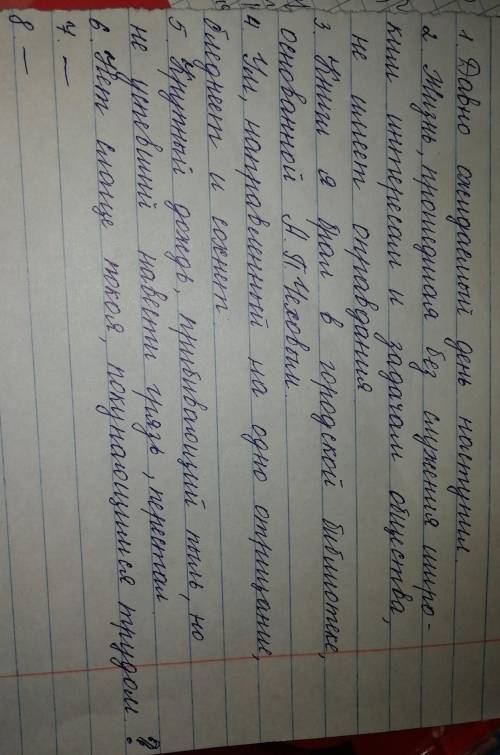 1. Давно ожидаемый день наступил.
2. Жизнь, прошедшая без служения широ-
ким интересам и задачам общества,
не имеет оправдания
3. Книги я брал в городской библиотеке,
основанной А.П. Чеховым.
4 Ум, направленный на одно отрицание,
бледнеет и сохнит
5 Крупный дождь, прибивающий пыль, но
не успевший навести грязь, перестал
6. Нет слаще покоя, покупающимся трудом.
7. –
8 –